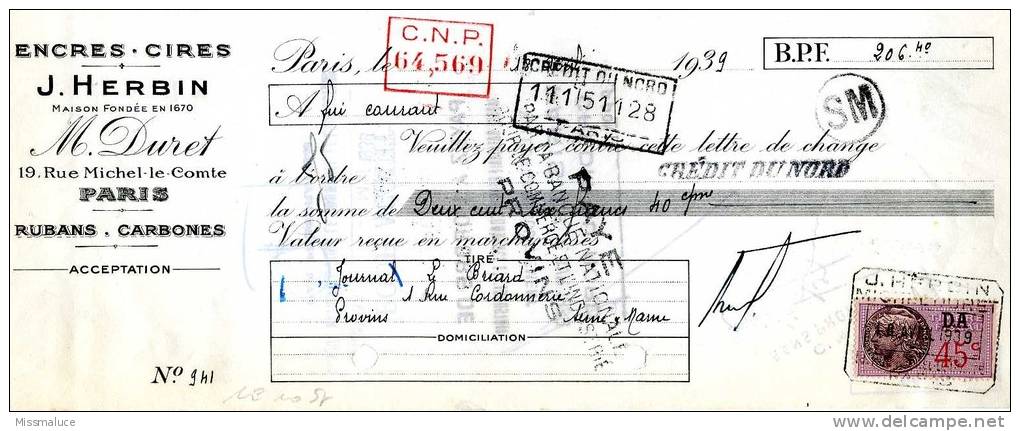 ENCRES · CIRES
J. HERBIN
MAISON FONDÉE EN 1670
M. Duret
19, Rue Michel-le-Comte
PARIS
RUBANS . CARBONES
ACCEPTATION
Nº 941
C.N.P.
64,569
Paris, le 1939
B.P.F. 206.40
CRÉDIT DU NORD
SM
A fin courant
Veuillez payer contre cette lettre de change
CRÉDIT DU NORD
à l'ordre
la somme de Deux cent six francs 40 cms
Valeur reçue en marchandises
PAYE
PAR LA BANQUE NATIONALE
PROVINS
TIRÉ
Journal Le Briard
1 Rue Cordonnerie
Provins Seine & Marne
DOMICILIATION
J. HERBIN
DA
1939
45c
Missmaluce
delcampe.net